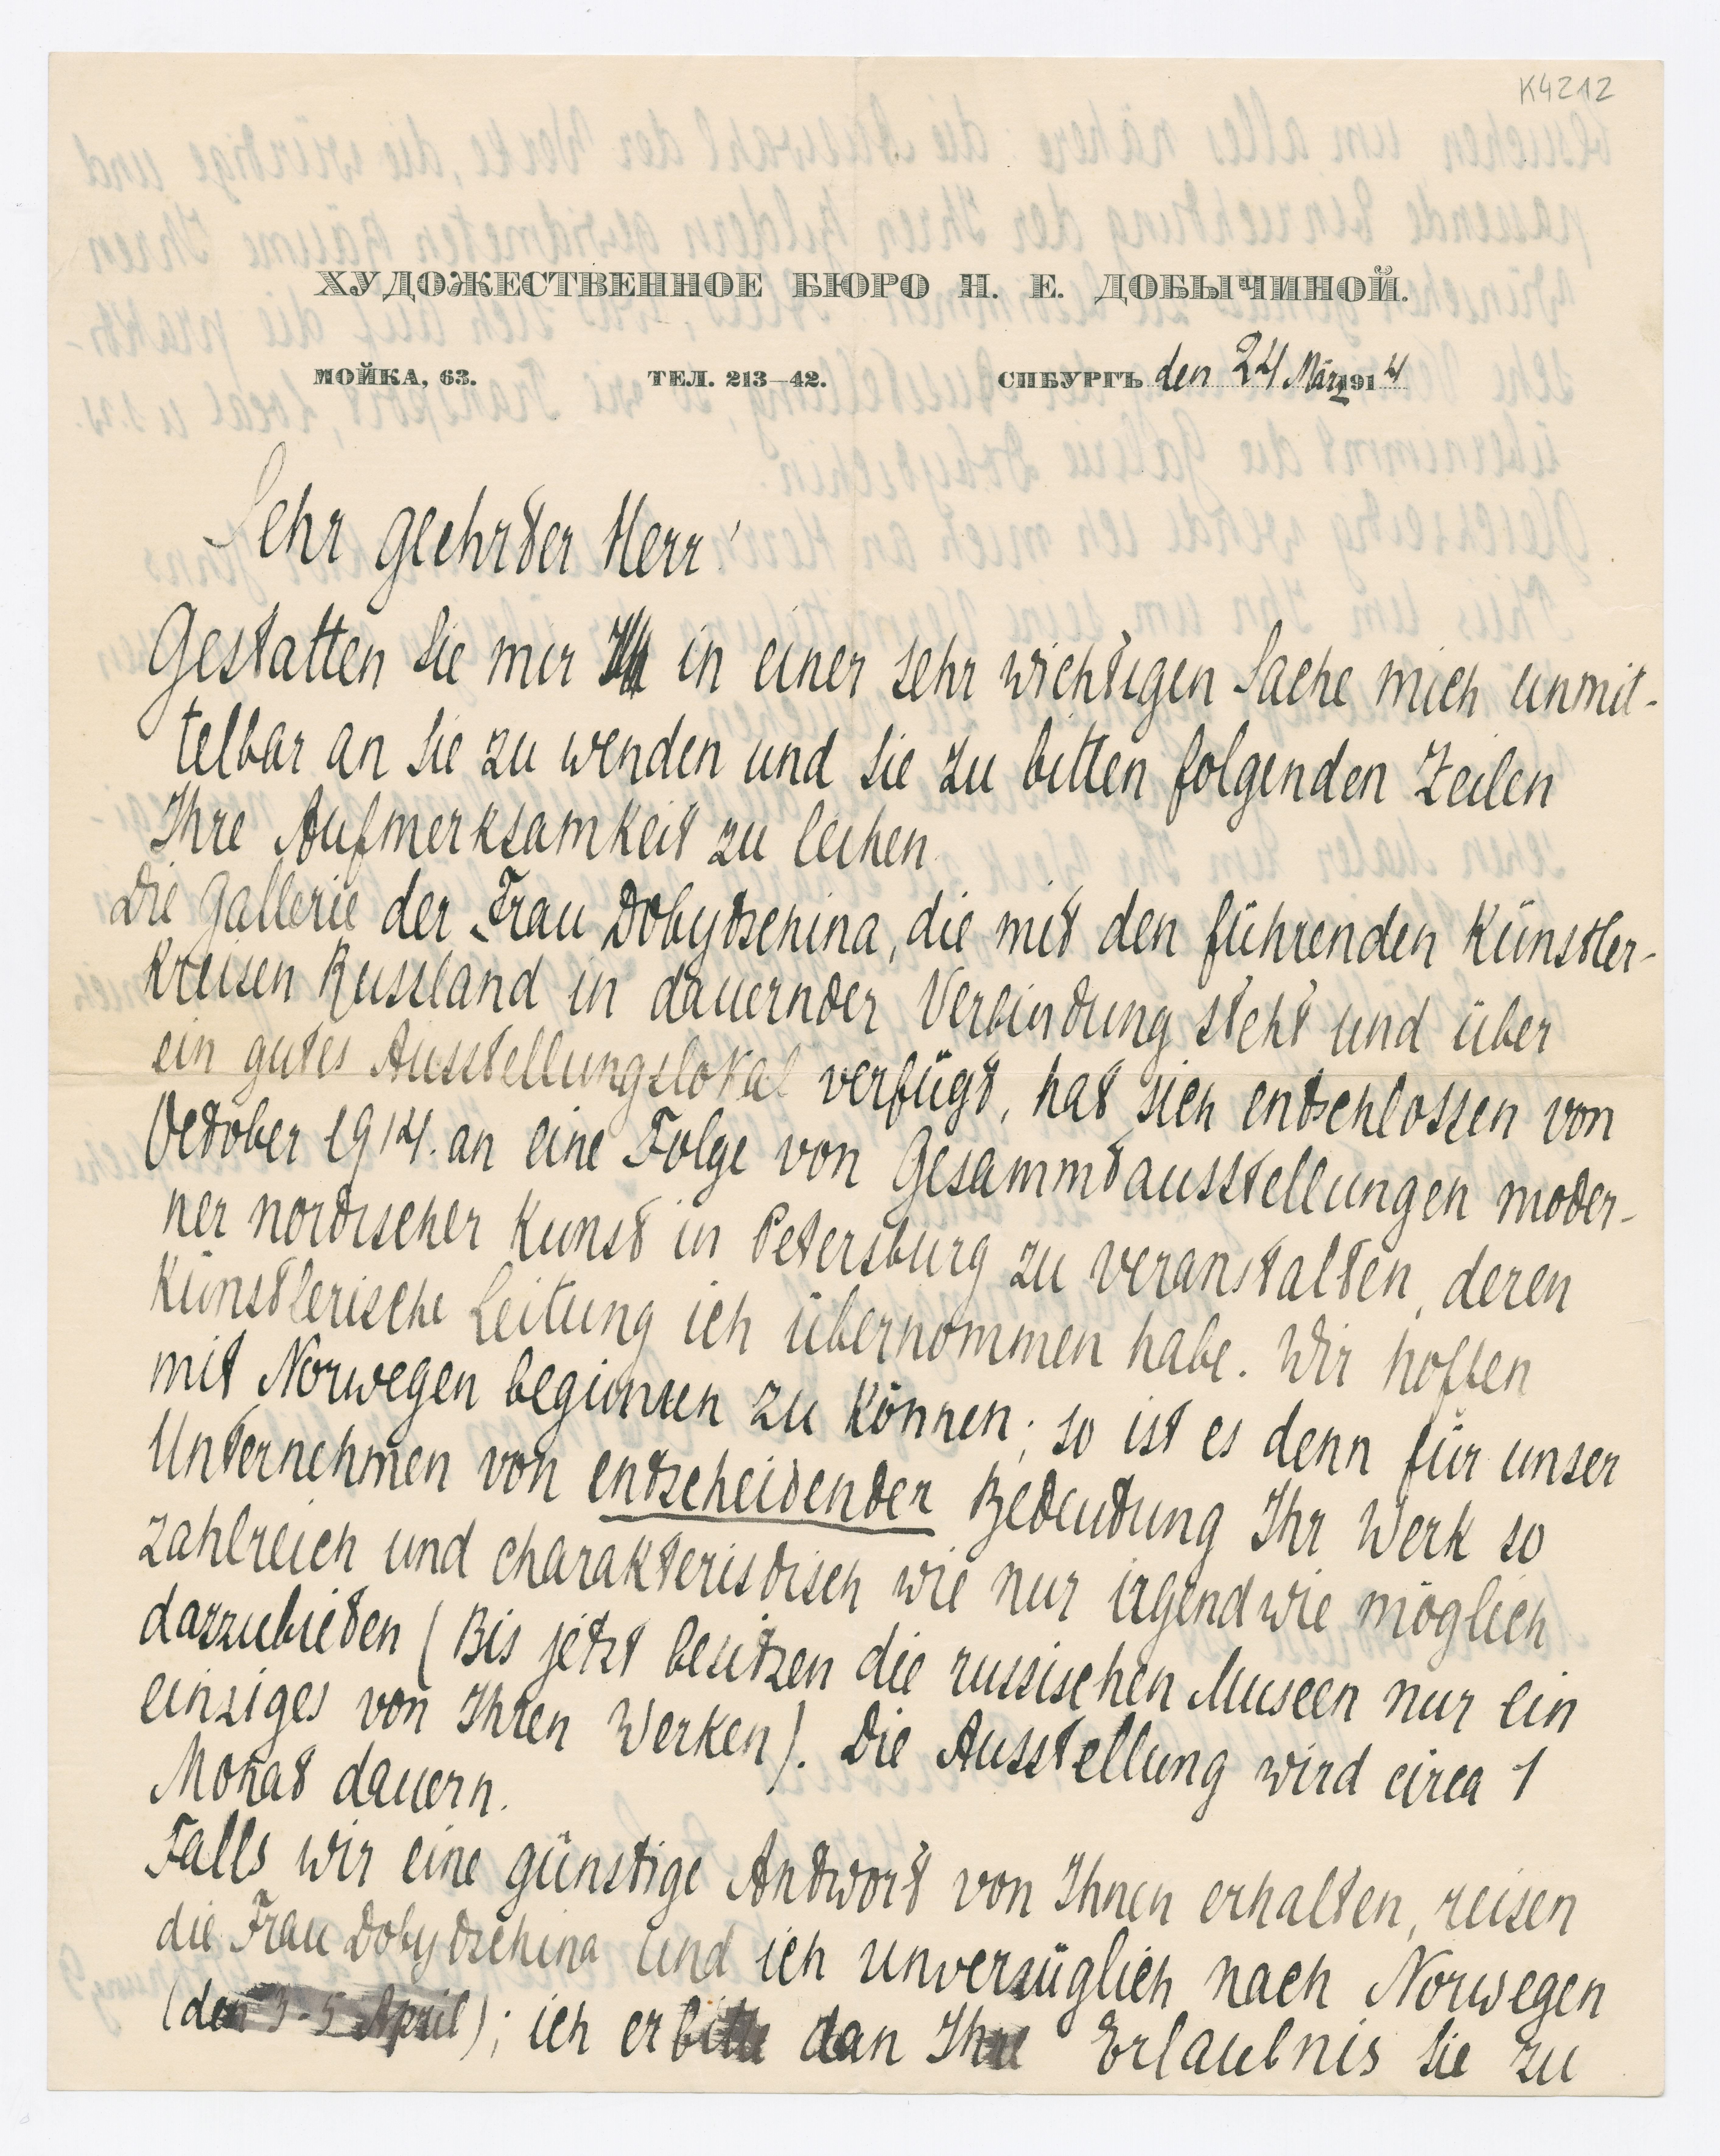 K4212
ХУДОЖЕСТВЕННОЕ БЮРО Н. Е. ДОБЫЧИНОЙ.
МОЙКА, 63. ТЕЛ. 213—42. СПБУРГЪ den 24 März 1914
Sehr geehrter Herr!
Gestatten Sie mir in einer sehr wichtigen Sache mich unmit-
telbar an Sie zu wenden und Sie zu bitten folgenden Zeilen
Ihre Aufmerksamkeit zu leihen.
Die Gallerie der Frau Dobytschina, die mit den führenden Künstler-
kreisen Russland in dauernder Verbindung steht und über
ein gutes Ausstellungslokal verfügt, hat sich entschlossen von
October 1914. an eine Folge von Gesammtausstellungen moder-
ner nordischer Kunst in Petersburg zu veranstalten, deren
Künstlerische Leitung ich übernommen habe. Wir hoffen
mit Norwegen beginnen zu können; so ist es denn für unser
Unternehmen von entscheidender Bedeutung Ihr Werk so
zahlreich und charakteristisch wie nur irgendwie möglich
darzubieten (Bis jetzt besitzen die russischen Museen nur ein
einziges von Ihren Werken). Die Ausstellung wird circa 1
Monat dauern.
Falls wir eine günstige Antwort von Ihnen erhalten, reisen
die Frau Dobytschina und ich unverzüglich nach Norwegen
(den 3-5 April); ich erbitte dan Ihre Erlaubnis Sie zu